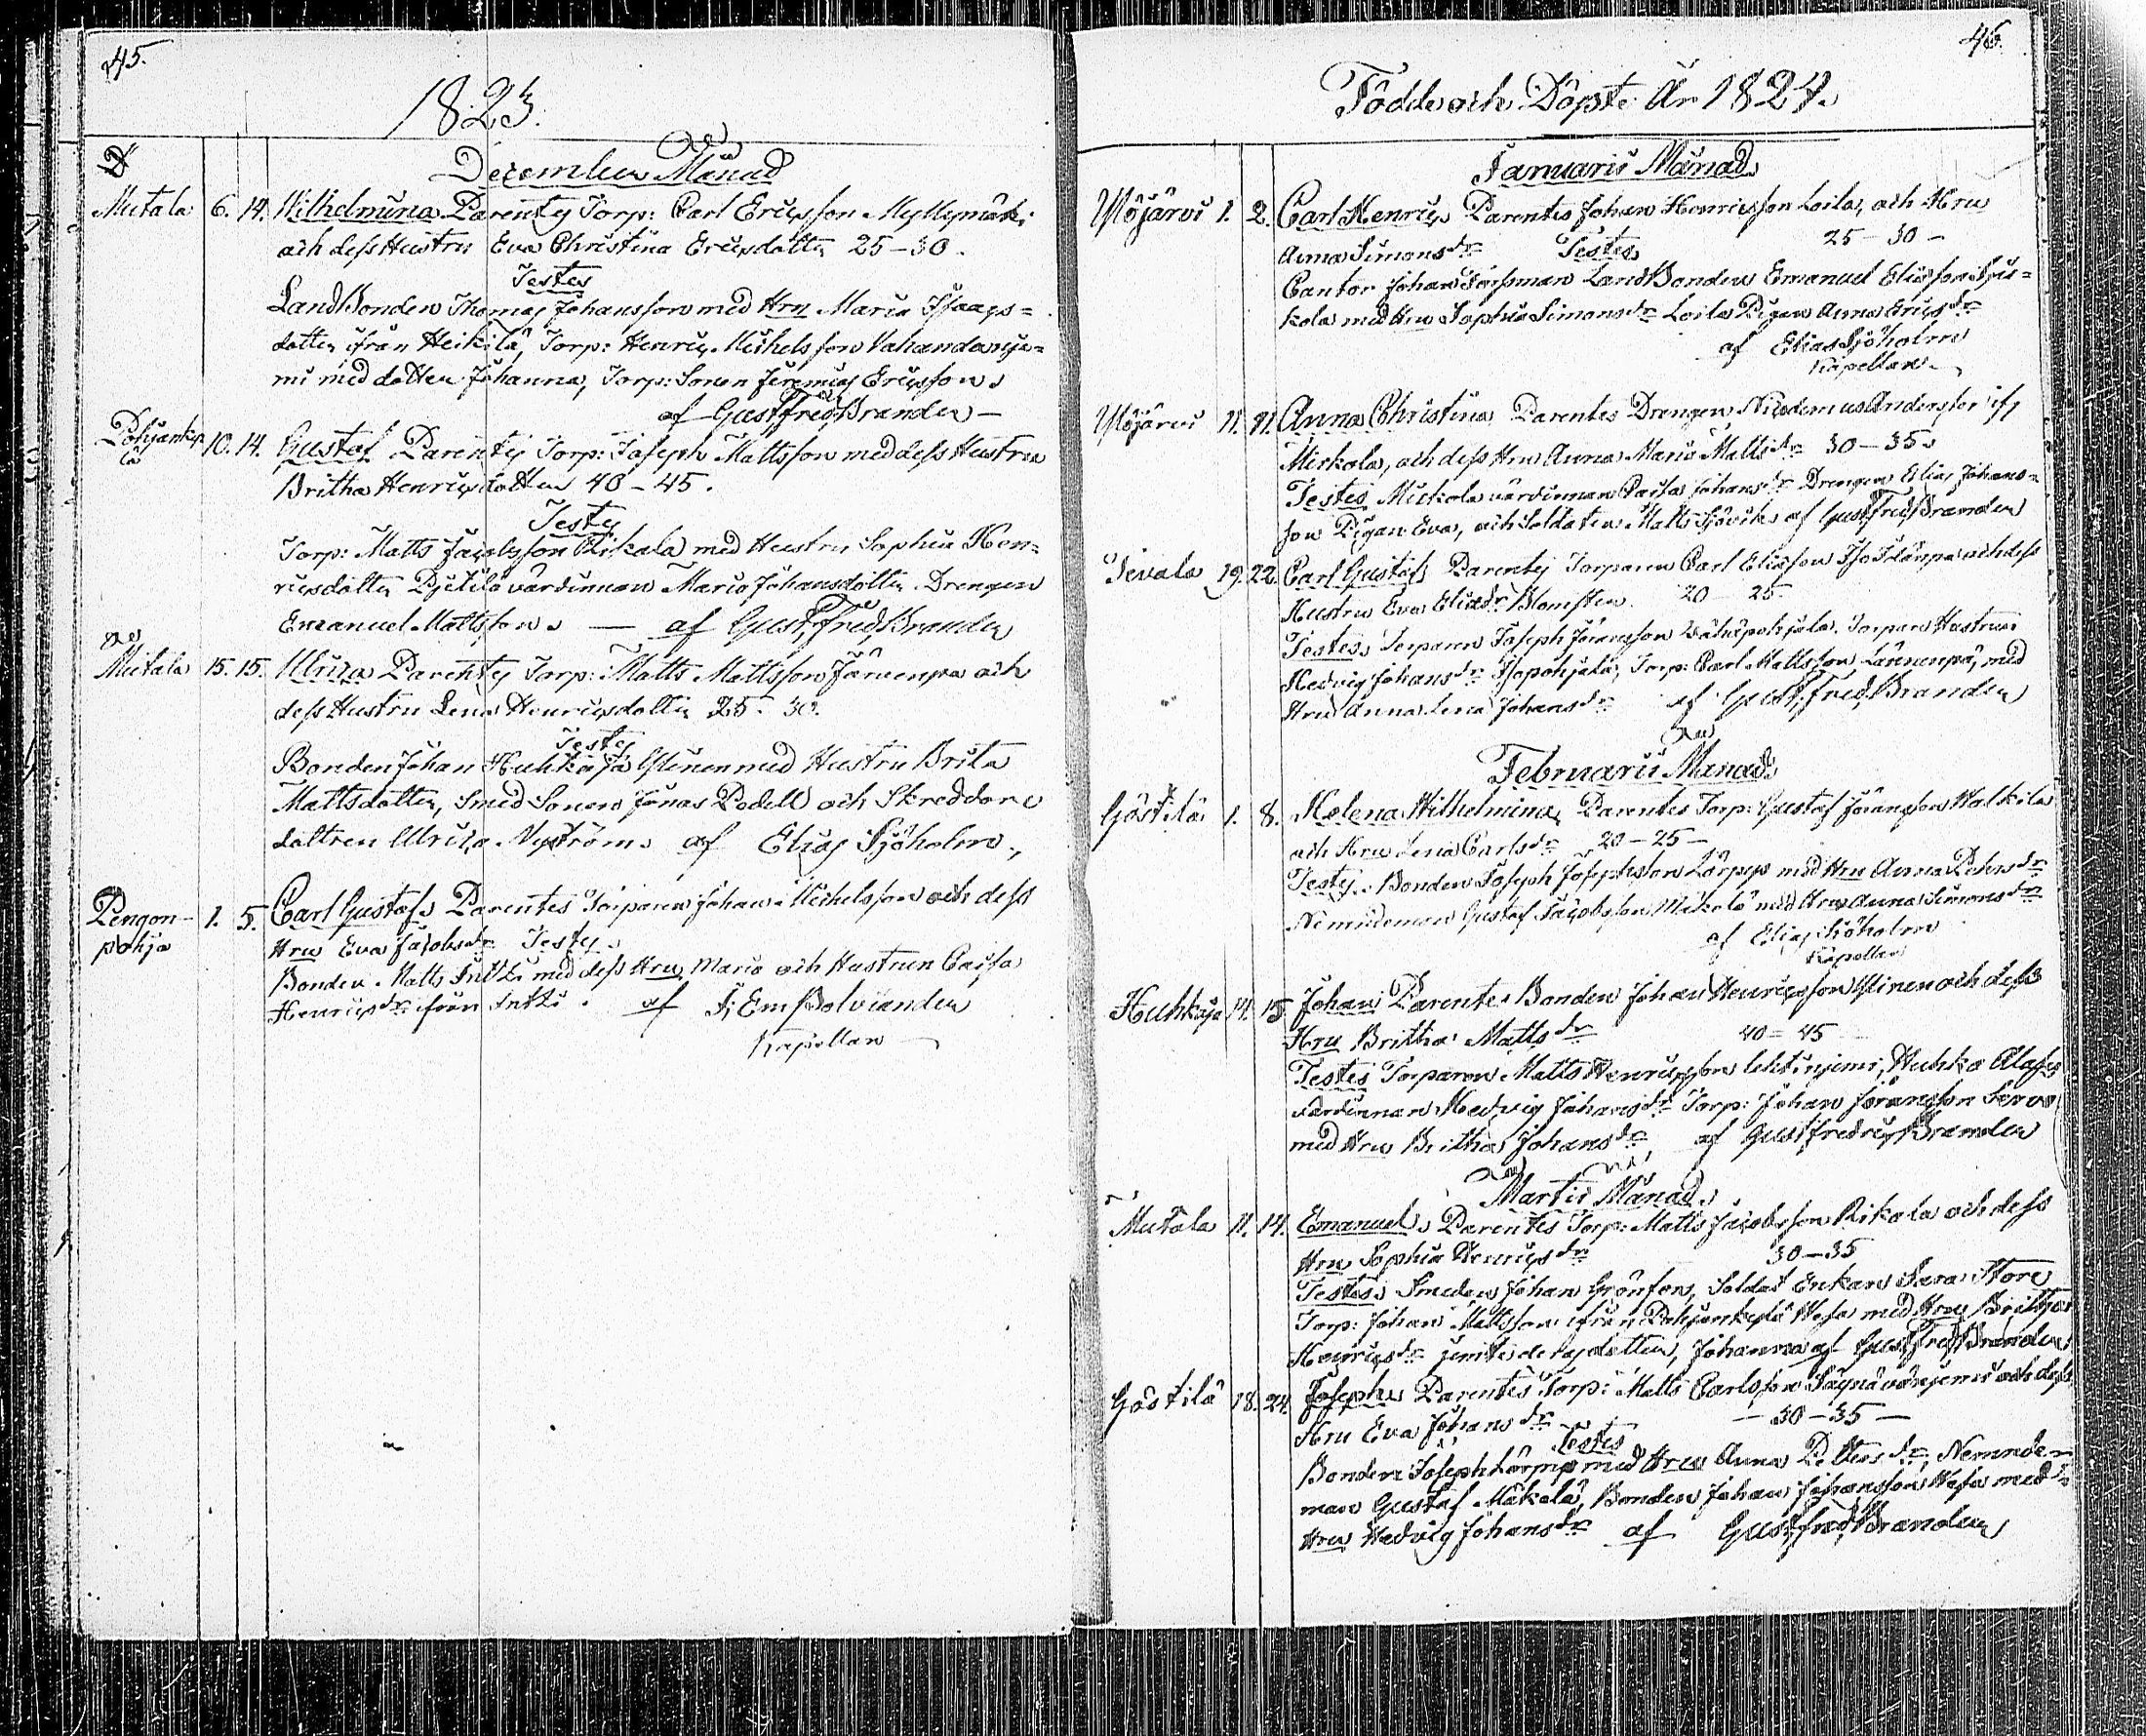 45.
1823.
December Månad
Mutala 6. 14. Wilhelmina Parentes Torp: Carl Ericsson Myllymäki
och dess Hustru Eva Christina Ericsdotter 25-30.
Testes
LandBonden Thomas Johansson med Hru Maria Isaacs=
dotter ifrån Heikilä, Torp: Henric Michelsson Vahandanje=
mi med dotter Johanna, Torp: Sonen Jeremias Ericsson.
af Gust. Fred. Brander —
Pohjankylä 10. 14. Gustaf Parentes Torp: Joseph Mattsson med dess Hustru
Britha Henricsdotter 40-45.
Testes
Torp: Matts Jacobsson Rikala med Hustru Sophia Hen=
ricsdotter värdinnan Maria Johansdotter Drengen
Emanuel Mattsson. — af Gust, Fred Brander
Mutala 15. 15. Ulrica Parentes Torp: Matts Mattsson Järvenpä och
dess Hustru Lena Henricsdotter 25- 30.
Testes
Bonden Johan Huhkaja Ylinen med Hustru Brita
Mattsdotter, Smed Sonen Jonas Podell och Skreddare
dottren Ulrica Nyström. af Elias Sjöholm.
Pengon-
pohja 1. 5. Carl Gustaf. Parentes Torparen Johan Michelsson och dess
Hru Eva Jacobsdr Testes.
Bonden Matts Intti med dess Hru Maria och Hustrun Caisa
Henricsdr ifrån Intti. af F. Em Bolviander
Kapellan
46.
Födde och Döpte År 1824.
Januarii Månad.
Ylöjärvi 1. 2. Carl Henric Parentes Johan Henricsson Loila, och Hru
Anna Simonsdr Testes 25-30-
Cantor Johan Forssman LandBonden Emanuel Eliasson
kola med Hru Sophia Simonsdr Loila Pigan Anna Ericsdr
af Elias Sjöholm
Kapellan
Ylöjärvi 11. 11. Anna Christina Parentes Drengen Nicodemus Andersson
Mickola, och dess Hru Anna Maria Mattsdr 30-35.
Testes Mickola värdinnan Caisa Johansdr Drengen Elias Johans=
son Pigan Eva, och Soldaten Matts Sjövik af Gust Fred Brander
Sevala 19. 22. Carl Gustaf Parentes Torparen Carl Eliasson och dess
Hustru Eva Eliædr Blomster. 20 25-
Testes. Torparen Joseph Göransson Vähäpohjala. Torpare Hustrun
Hedvig Johansdr Isopohjala, Torp: Carl Mattsson Lännenpä, med
Hru Anna Lena Johansdr af Gust, Fred, Brander
Februarii Månad.
Göstilä 1. 8. Helena Wilhelmina Parentes Torp: Gustaf Göransson Walkila
och Hru Lena Carlsdr 20-25-
Testes. Bonden Joseph Josephsson Lörpys med Hru Anna Petersdr
Nemndeman Gustaf Jacobsson Mäkelä med Hru Anna Simonsdr
af Elias Sjöholm
Kapellan
Huhkaja 14. 15. Johan Parentes Bonden Johan Henricsson Ylinen och dess
Hru Britha Mattsdr 40=45
Testes Torparen Matts Henricsson lehtinjemi, Huhka
värdinnan Hedvig Johansdr Torp: Johan Göransson
med Hru Britha Johansdr af Gust fredric Brander
Martii Månad.
Mutala 11. 14. Emanuel. Parentes Torp: Matts Jacobsson Rikala och dess
Hru Sophia Henricsdr 30-35
Testes. Smeden Johan Grönfors, Soldat Enkan Sara Store
Torp: Johan Mattsson ifrån Pohjankylä Wesa med Hru Britha
Henricsdr jemte deras dotter, Johanna af Gust, Fred, Brander
Göstilä 18. 24. Joseph Parentes Torp: Matts Carlsson och dess
Hru Eva Johansdr - 30-35 -
Testes
Bonden Joseph Lörpys med Hru Anna Pettersdr, Nemnde-
man Gustaf Mäkelä, Bonden Johan Johansson Wesa med
Hru Hedvig Johansdr af Gust, fred, Brander